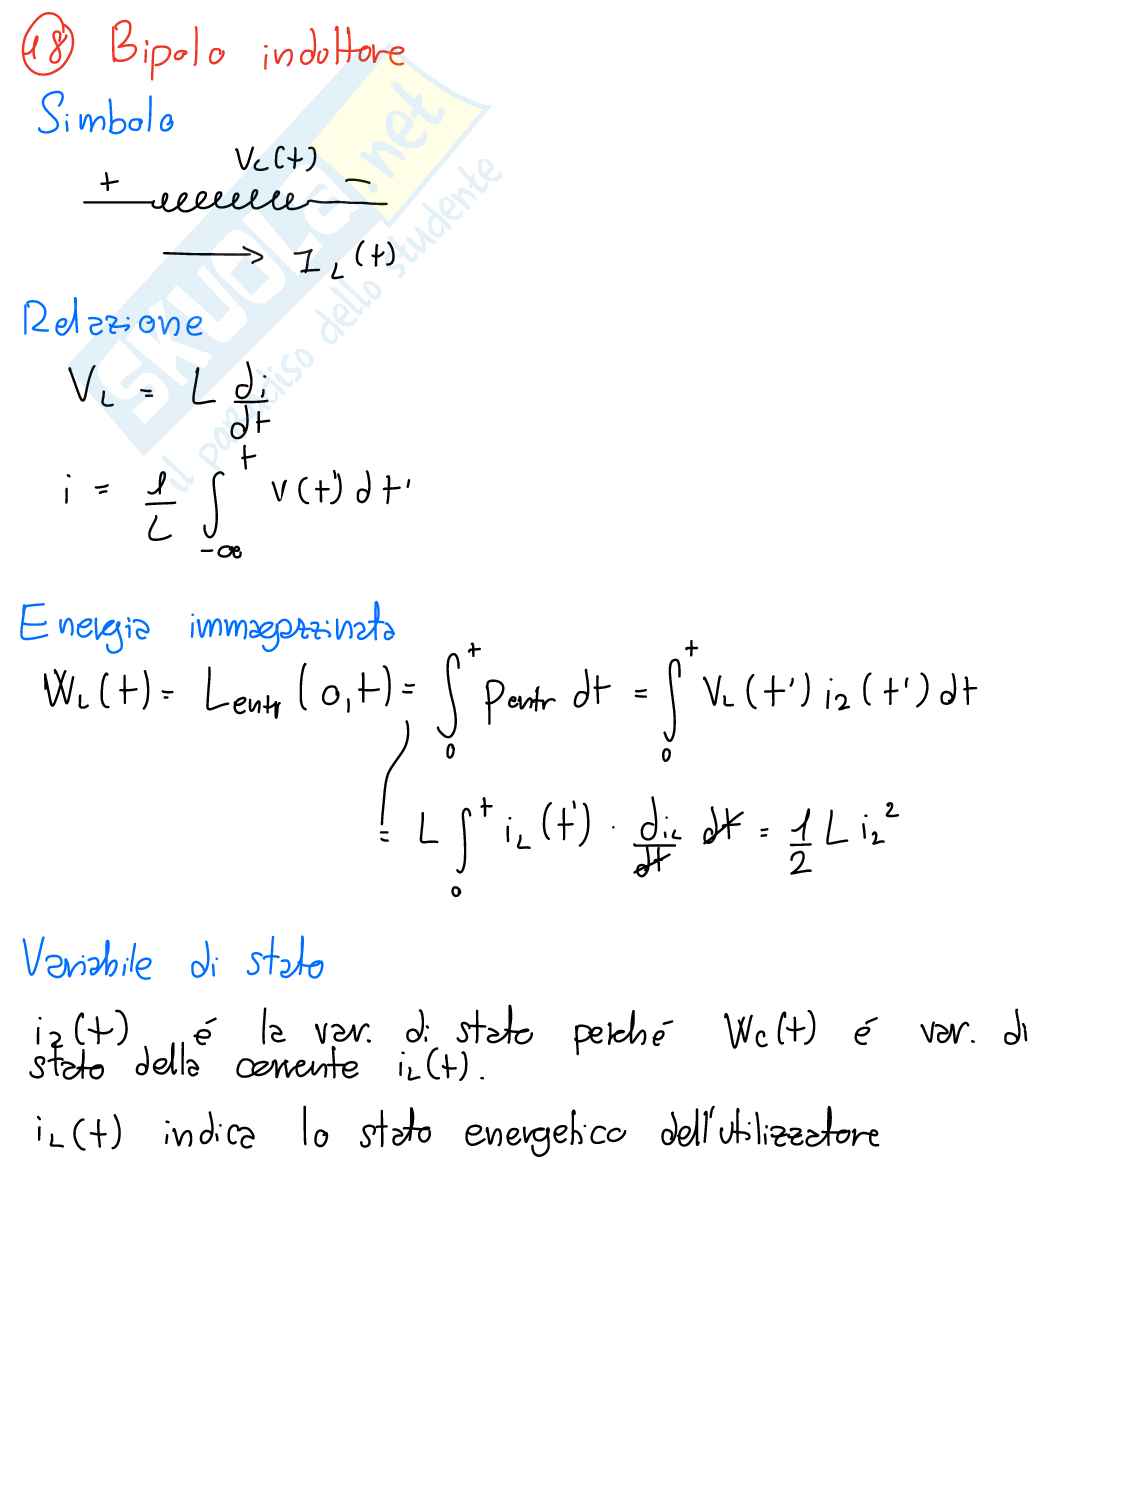 18 Bipolo induttore
Simbolo
+ VL(t) −
IL(t)
Relazione
VL = L di/dt
i = 1/L ∫_{-∞}^{t} v(t') dt'
Energia immagazzinata
WL(t) = Lentr (0,t) = ∫_0^t pentr dt = ∫_0^t VL(t') i2(t') dt
= L ∫_0^t iL(t') · diL/dt dt = 1/2 L i2²
Variabile di stato
i2(t) é la var. di stato perché Wc(t) é var. di
stato della corrente iL(t).
iL(t) indica lo stato energetico dell'utilizzatore
SKUOLA.net
il paradiso dello studente